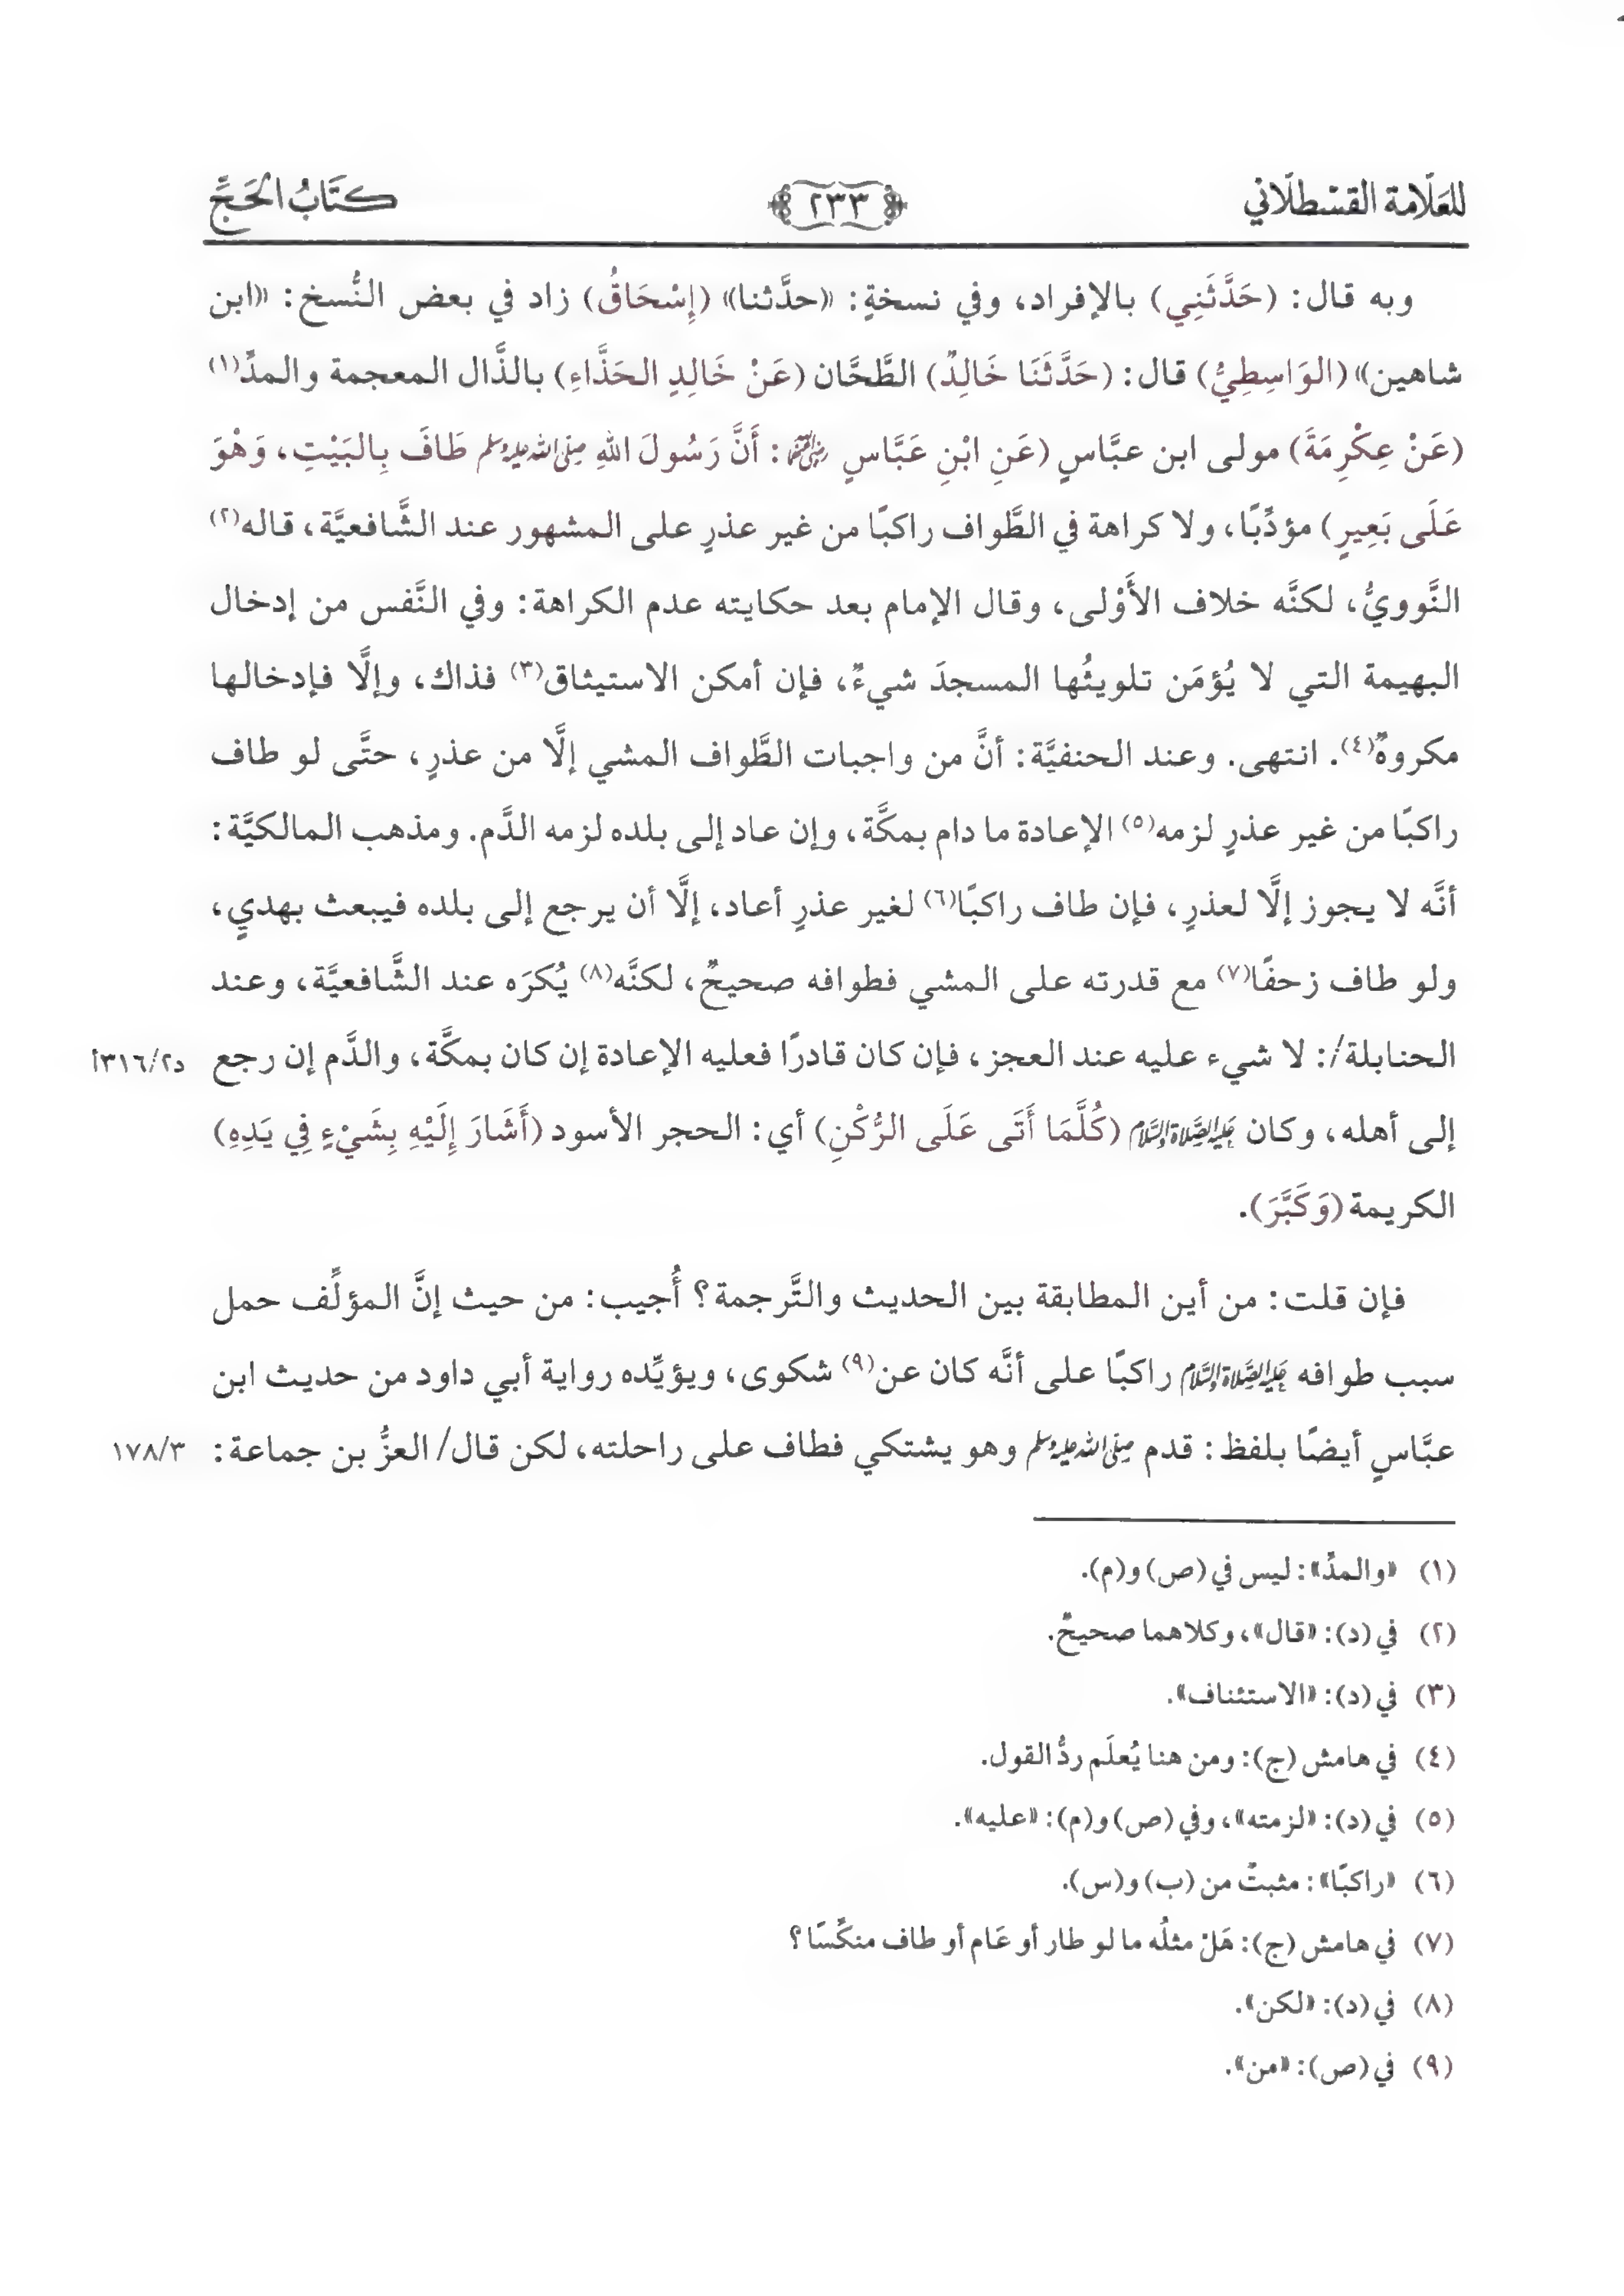 للعَلّامة القسْطلّاني
٢٣٣
كتَابُ الحَجِّ
وبه قال: (حَدَّثَنِي) بالإفراد، وفي نسخةٍ: «حدَّثنا» (إِسْحَاقُ) زاد في بعض النُّسخ: «ابن
شاهين» (الوَاسِطِيُّ) قال: (حَدَّثَنَا خَالِدٌ) الطَّحَّان (عَنْ خَالِدٍ الحَذَّاءِ) بالذَّال المعجمة والمدِّ(١)
(عَنْ عِكْرِمَةَ) مولى ابن عبَّاسٍ (عَنِ ابْنِ عَبَّاسٍ رضي الله عنهما: أَنَّ رَسُولَ اللهِ صلى الله عليه وسلم طَافَ بِالبَيْتِ، وَهْوَ
عَلَى بَعِيرٍ) مؤدِّبًا، ولا كراهة في الطَّواف راكبًا من غير عذرٍ على المشهور عند الشَّافعيَّة، قاله(٢)
النَّوويُّ، لكنَّه خلاف الأَوْلى، وقال الإمام بعد حكايته عدم الكراهة: وفي النَّفس من إدخال
البهيمة التي لا يُؤمَن تلويثُها المسجدَ شيءٌ، فإن أمكن الاستيثاق(٣) فذاك، وإلَّا فإدخالها
مكروهٌ(٤). انتهى. وعند الحنفيَّة: أنَّ من واجبات الطَّواف المشي إلَّا من عذرٍ، حتَّى لو طاف
راكبًا من غير عذرٍ لزمه(٥) الإعادة ما دام بمكَّة، وإن عاد إلى بلده لزمه الدَّم. ومذهب المالكيَّة:
أنَّه لا يجوز إلَّا لعذرٍ، فإن طاف راكبًا(٦) لغير عذرٍ أعاد، إلَّا أن يرجع إلى بلده فيبعث بهديٍ،
ولو طاف زحفًا(٧) مع قدرته على المشي فطوافه صحيحٌ، لكنَّه(٨) يُكرَه عند الشَّافعيَّة، وعند
الحنابلة/: لا شيء عليه عند العجز، فإن كان قادرًا فعليه الإعادة إن كان بمكَّة، والدَّم إن رجع
د٣١٦/٢أ
إلى أهله، وكان عليه الصلاة والسلام (كُلَّمَا أَتَى عَلَى الرُّكْنِ) أي: الحجر الأسود (أَشَارَ إِلَيْهِ بِشَيْءٍ فِي يَدِهِ)
الكريمة (وَكَبَّرَ).
فإن قلت: من أين المطابقة بين الحديث والتَّرجمة؟ أُجيب: من حيث إنَّ المؤلِّف حمل
سبب طوافه عليه الصلاة والسلام راكبًا على أنَّه كان عن(٩) شكوى، ويؤيِّده رواية أبي داود من حديث ابن
عبَّاسٍ أيضًا بلفظ: قدم صلى الله عليه وسلم وهو يشتكي فطاف على راحلته، لكن قال/ العزُّ بن جماعة:
١٧٨/٣
(١) «والمدِّ»: ليس في (ص) و(م).
(٢) في (د): «قال»، وكلاهما صحيحٌ.
(٣) في (د): «الاستئناف».
(٤) في هامش (ج): ومن هنا يُعلَم ردُّ القول.
(٥) في (د): «لزمته»، وفي (ص) و(م): «عليه».
(٦) «راكبًا»: مثبتٌ من (ب) و(س).
(٧) في هامش (ج): هَلْ مثلُه ما لو طار أو عَام أو طاف منكِّسًا؟
(٨) في (د): «لكن».
(٩) في (ص): «من».